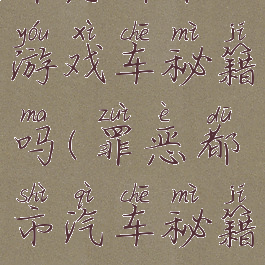 yóu xì chē mì jí
游戏车秘籍
ma zuì è dū
吗(罪恶都
shì qì chē mì jí
市汽车秘籍